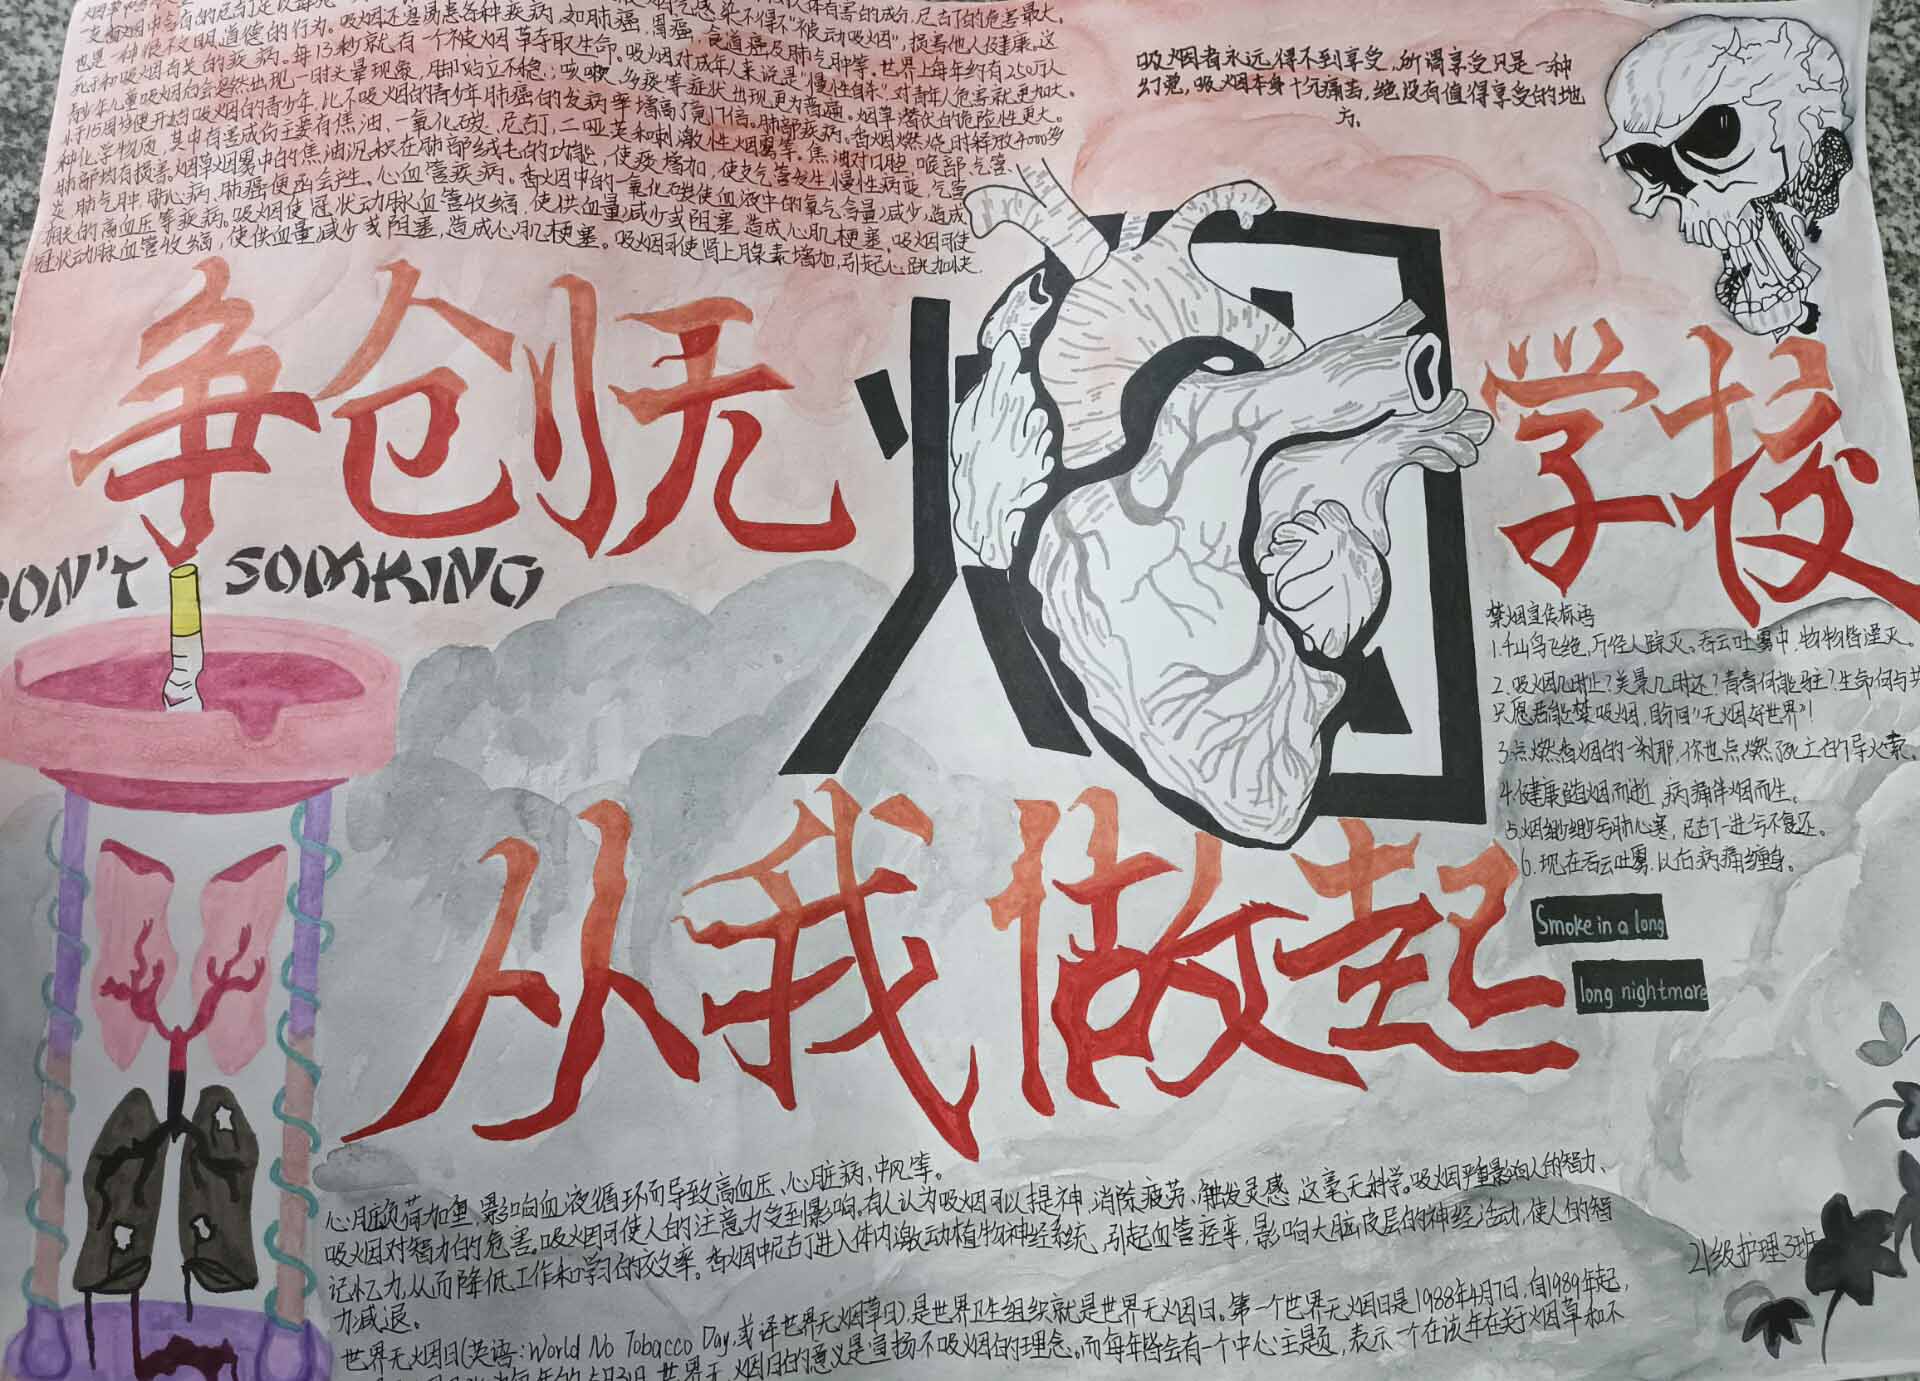 一支香烟中含有的尼古丁足以毒死
也是一种很不文明道德的行为。吸烟还易患各种疾病,如肺癌,胃癌,食道癌及肺气肿等。世界上每年约有250万人
死于和吸烟有关的疾病。每13秒就有一个被烟草夺取生命。吸烟对成年人来说是"慢性自杀",对青年人危害就更加大。
青少年儿童吸烟后会忽然出现一时头晕现象,脚站立不稳;咳嗽、多痰等症状出现更为普遍。烟草潜伏的危险性更大。
小于15周岁便开始吸烟的青少年,比不吸烟的青少年肺癌的发病率增高了竟17倍。肺部疾病。香烟燃烧时释放4000多
种化学物质,其中有害成份主要有焦油、一氧化碳、尼古丁,二哑英和刺激性烟雾等。焦油对口腔,喉部,气管、
肺部均有损害。烟草烟雾中的焦油沉积在肺部绒毛的功能,使痰增加,使支气管发生慢性病变,气管
炎,肺气肿,肺心病,肺癌便函会产生。心血管疾病。香烟中的一氧化碳使血液中的氧气含量减少,造成
相关的高血压等疾病。吸烟使冠状动脉血管收缩,使供血量减少或阻塞,造成心肌梗塞。吸烟可使
冠状动脉血管收缩,使供血量减少或阻塞,造成心肌梗塞。吸烟可使肾上腺素增加,引起心跳加快,
吸烟者永远得不到享受,所谓享受只是一种
幻觉,吸烟本身十分痛苦,绝没有值得享受的地
方。
争创无烟学校
DON'T SOMKING
禁烟宣传标语
1.千山鸟飞绝,万径人踪灭。吞云吐雾中,物物皆湮灭。
2.吸烟几时止?美景几时还?青春何能驻?生命何与共
只愿君能禁吸烟,盼回"无烟好世界"!
3.点燃香烟的一刹那,你也点燃死亡的导火索。
4.健康随烟而逝,病痛伴烟而生。
5.烟细缈缈亏肺心塞,尼古丁一进亏不复还。
6.现在吞云吐雾,以后病痛缠身。
从我做起
Smoke in a long
long nightmare
心脏负荷加重,影响血液循环而导致高血压、心脏病,中风等。
吸烟对智力的危害。吸烟可使人的注意力受到影响。有人认为吸烟可以提神,消除疲劳、触发灵感,这毫无科学。吸烟严重影响人的智力、
记忆力,从而降低工作和学习的效率。香烟中尼古丁进入体内激动植物神经系统,引起血管痉挛,影响大脑皮层的神经活动,使人的智
力减退。
世界无烟日(英语:World No Tobacco Day,或译世界无烟草日),是世界卫生组织就是世界无烟日。第一个世界无烟日是1988年4月7日,自1989年起,
世界无烟日的意义是宣扬不吸烟的理念。而每年皆会有一个中心主题,表示一个在该年在关于烟草和不
21级护理3班